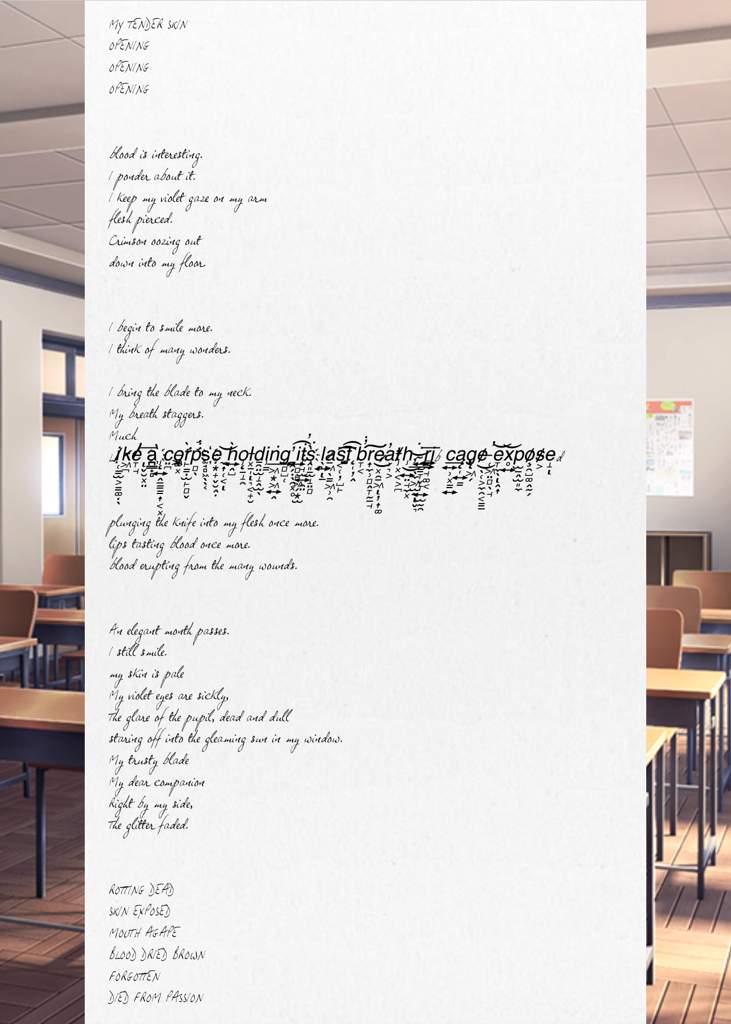 MY TENDER SKIN
OPENING
OPENING
OPENING
blood is interesting.
I ponder about it.
I keep my violet gaze on my arm
flesh pierced.
Crimson oozing out
down into my floor
I begin to smile more.
I think of many wonders.
I bring the blade to my neck.
My breath staggers.
Much
like a corpse holding its last breath, rib cage exposed
plunging the knife into my flesh once more.
lips tasting blood once more.
blood erupting from the many wounds.
An elegant month passes.
I still smile.
my skin is pale
My violet eyes are sickly,
The glare of the pupil, dead and dull
staring off into the gleaming sun in my window.
My trusty blade
My dear companion
Right by my side,
The glitter faded.
ROTTING DEAD
SKIN EXPOSED
MOUTH AGAPE
BLOOD DRIED BROWN
FORGOTTEN
DIED FROM PASSION